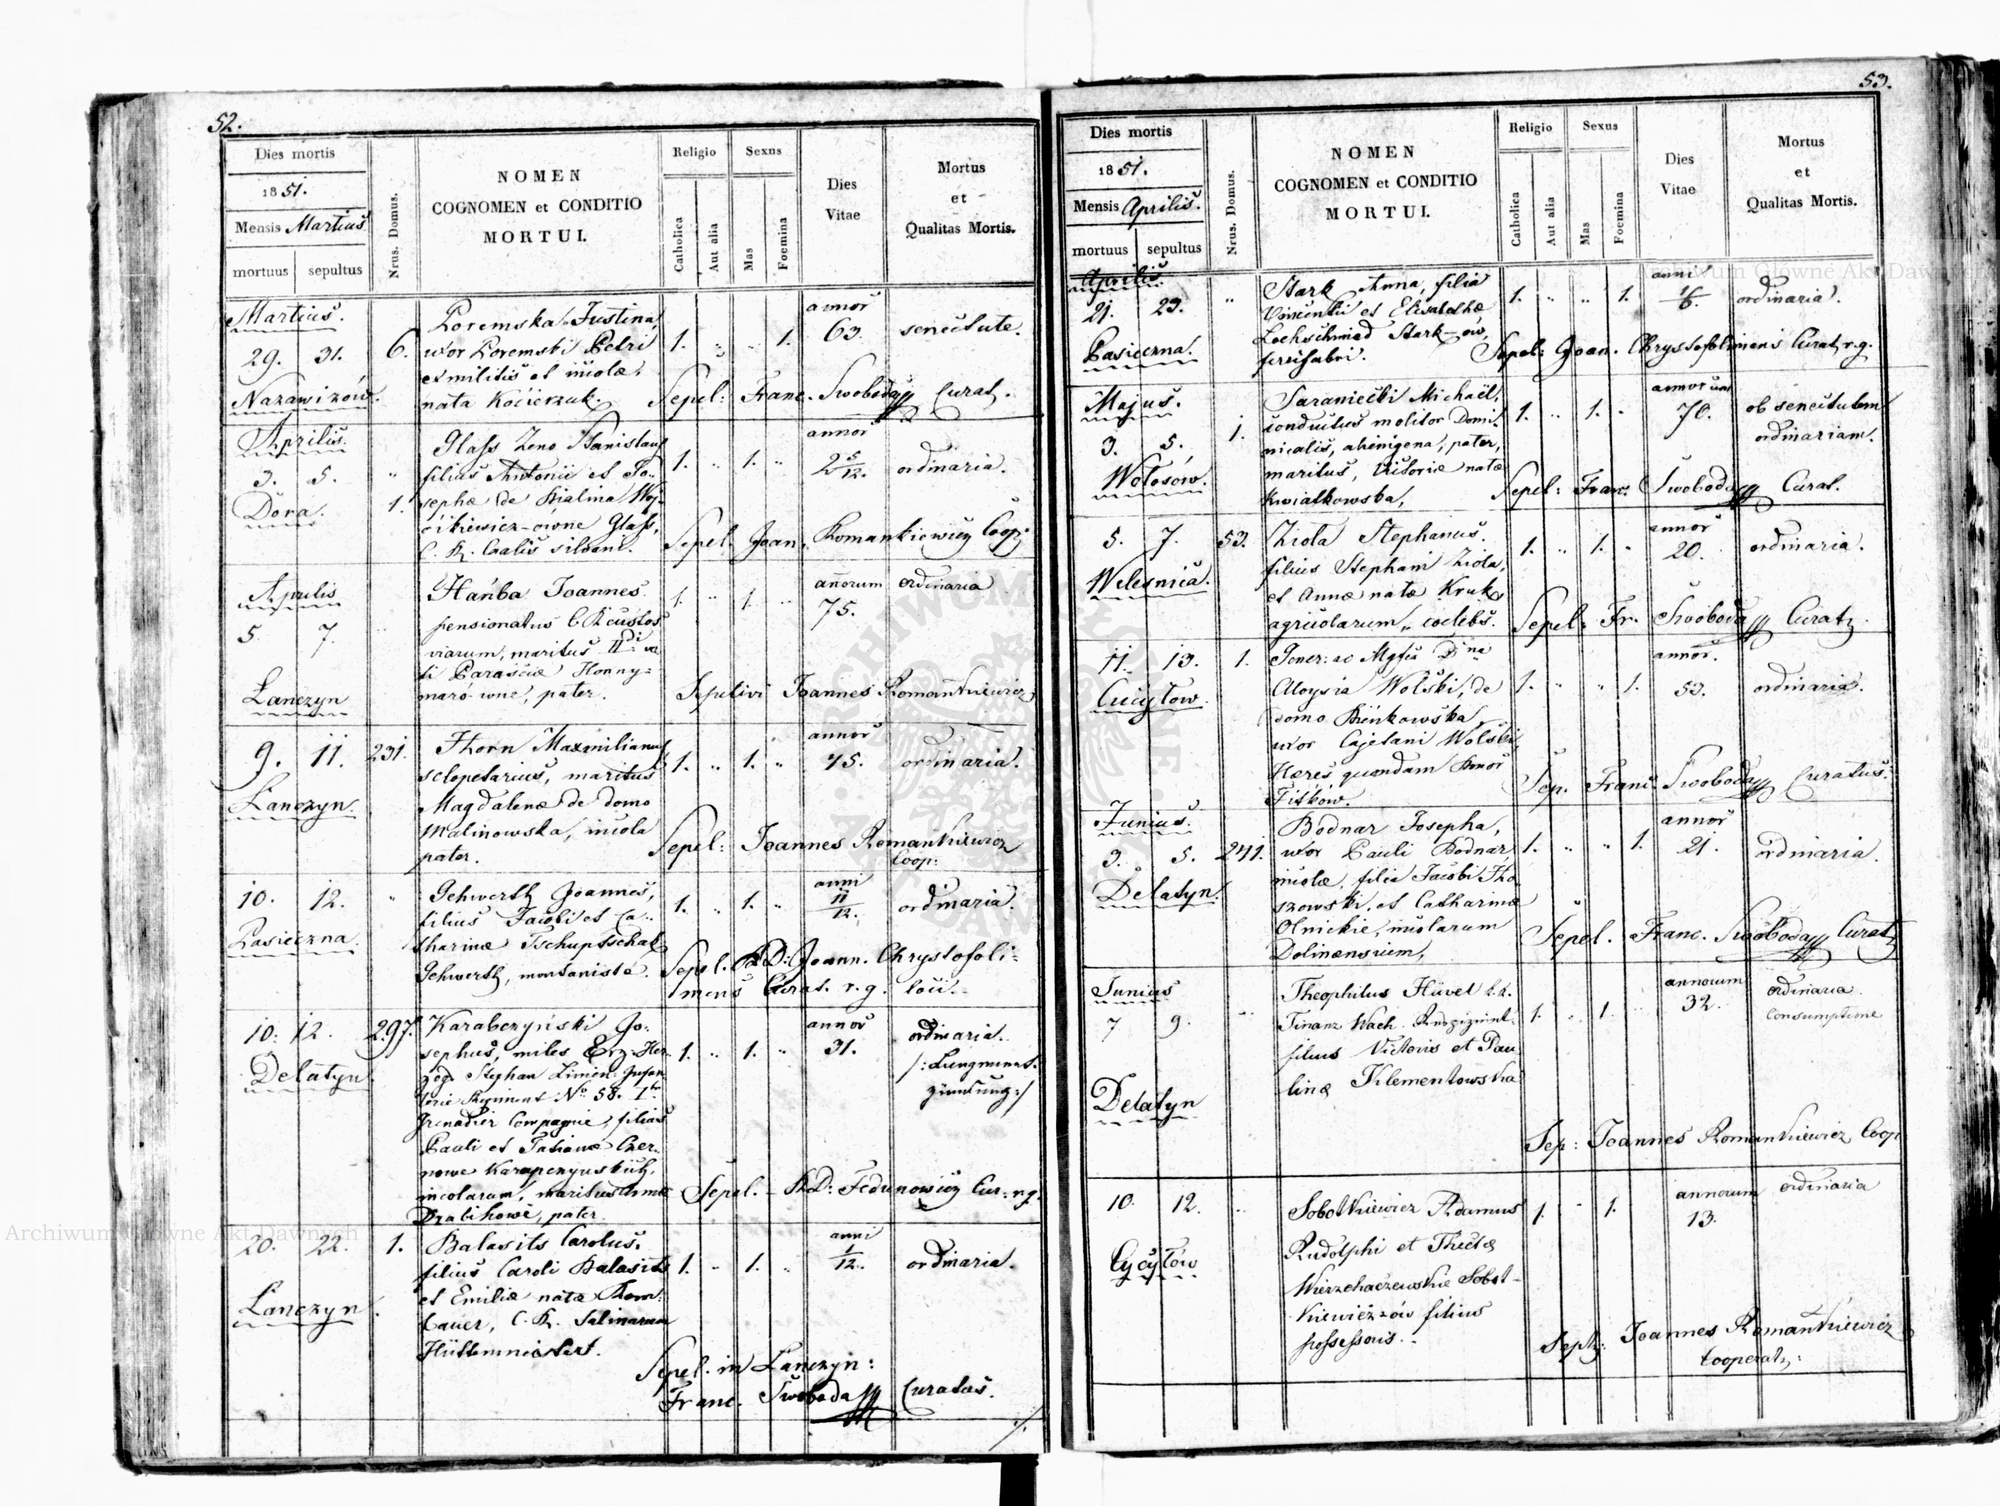 52.
Dies mortis
1851.
Mensis Martius
mortuus sepultus
Nrus. Domus.
NOMEN
COGNOMEN et CONDITIO
MORTUI.
Religio
Catholica
Aut alia
Sexus
Mas
Foemina
Dies
Vitae
Mortus
et
Qualitas Mortis.
Martius.
29. 31. 6.
Nazawizów.
Poremska Justina,
uxor Poremski Petri
exmilitis et incolæ,
nata Kocierzuk.
1. 1.
annor
63.
senectute.
Sepel: Franc. Swoboda Curat.
Aprilis.
3. 5. "
Dora. 1.
Glass Zeno Stanislaus
filius Antonii et Jo-
sephæ de Bialina Woj-
cikiewicz-owne Glass,
C. R. Calis silvani.
1. " 1. "
annor
2 5/12.
ordinaria.
Sepel. Joan. Romankiewicz Coop:
Aprilis
5. 7.
Lanczyn
Hańba Joannes
pensionatus C R custos
viarum, maritus IIdi vo
ti Parasciæ Honny-
maro-wne, pater.
1. " 1. "
annorum
75.
ordinaria
Sepelivi Joannes Romankiewicz
9. 11. 231.
Lanczyn.
Thorn Maximilianus,
sclopetarius, maritus
Magdalenæ de domo
Malinowska, incola
pater.
1. " 1. "
annor
45.
ordinaria.
Sepel: Joannes Romankiewicz
Coop:
10. 12. "
Pasieczna.
Gehwerth Joannes,
filius Jacobi et Ca-
tharinæ Tschuptschak
Gehwerth, montanistæ.
1. " 1. "
anni
11/12.
ordinaria.
Sepel. R D: Joann. Chrystofoli-
mens Curat. r. g. loci.
10. 12. 297.
Delatyn.
Karabczyński Jo-
sephus, miles Erz-Her-
zog Stephan Linien Infan
terie Regiment No 58. 1te
Grenadier Compagnie, filius
Pauli et Tatianæ Czer-
nowe Karapczynskich,
incolarum, maritus Annæ
Drabikowe, pater.
1. " 1. "
annor
31.
ordinaria.
/:Lungenent-
zündung:/
Sepel. R D: Fedunowicz Cur: r. g.
20. 22. 1.
Lanczyn.
Balasits Carolus,
filius Caroli Balasits
et Emiliæ natæ
C. R. Salinarum
Hüttenmeister.
1. " 1. "
anni
1/12.
ordinaria.
Sepel. in Lanczyn:
Franc. Swoboda Curatus.
53.
Dies mortis
1851.
Mensis Aprilis.
mortuus sepultus
Nrus. Domus.
NOMEN
COGNOMEN et CONDITIO
MORTUI.
Religio
Catholica
Aut alia
Sexus
Mas
Foemina
Dies
Vitae
Mortus
et
Qualitas Mortis.
Aprilis.
21. 23. "
Pasieczna.
Stark Anna, filia
Vincentii et Elisabethæ
Lochschmied Stark-ów,
ferrifabri.
1. " " 1.
anni
1/6.
ordinaria.
Sepel: Joan. Chrystofolimens Curat. r. g.
Majus.
3. 5. 1.
Wołosów.
Saraniecki Michaël,
conductus molitor Domi-
nicalis, alienigena, pater,
maritus, Victoriæ natæ
Kwiatkowska,
1. " 1. "
70.
ob senectutem
ordinariam.
Sepel: Franc. Swoboda Curat.
5. 7. 53.
Welesnica.
Ziola Stephanus.
filius Stephani Ziola,
et Annæ natæ Kruk,
agricolarum, coelebs.
1. " 1. "
annor
20.
ordinaria.
Sepel: Fr. Swoboda Curat.
11. 13. 1.
Cucyłow.
Gener: ac Mgfca Dna
Aloysia Wolski, de
domo Bieńkowska,
uxor Cajetani Wolski,
Hæres quondam Bonor
Fitków.
1. " " 1.
annor.
53.
ordinaria.
Sep. Franc. Swoboda Curatus.
Junius.
3. 5. 241.
Delatyn.
Bodnar Josepha,
uxor Pauli Bodnar,
incolæ, filia Jacobi Tho-
szowski, et Catharinæ
Olnickie, incolarum
Dolinensium,
1. " " 1.
annor
21.
ordinaria.
Sepel. Franc. Swoboda Curat.
Junius
7 9. "
Delatyn
Theophilus Hüvel k. k.
Finanz Wach.
filius Victoris et Pau
linæ Klementowska
1. " 1. "
annorum
32.
ordinaria.
Consumptione
Sep: Joannes Romankiewicz Coop
10. 12. "
Cycyłów
Sobotkiewicz Adamus
Rudolphi et Theclæ
Wierzchaczewskie Sobot-
kiewicz-ów filius
possessoris.
1. " 1.
annorum
13.
ordinaria
Joannes Romankiewicz
Cooperat:
Archiwum Główne Akt Dawnych
Archiwum Główne Akt Dawnych